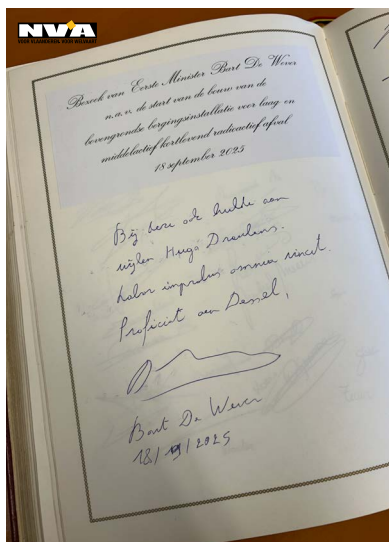 N-VA
VOOR VLAANDEREN. VOOR WELVAART.
Bezoek van Eerste Minister Bart De Wever
n.a.v. de start van de bouw van de
bovengrondse bergingsinstallatie voor laag- en
middelactief kortlevend radioactief afval
18 september 2025
Bij deze ook hulde aan
wijlen Hugo Draulans.
Labor improbus omnia vincit.
Proficiat aan Dessel,
Bart De Wever
18/9/2025